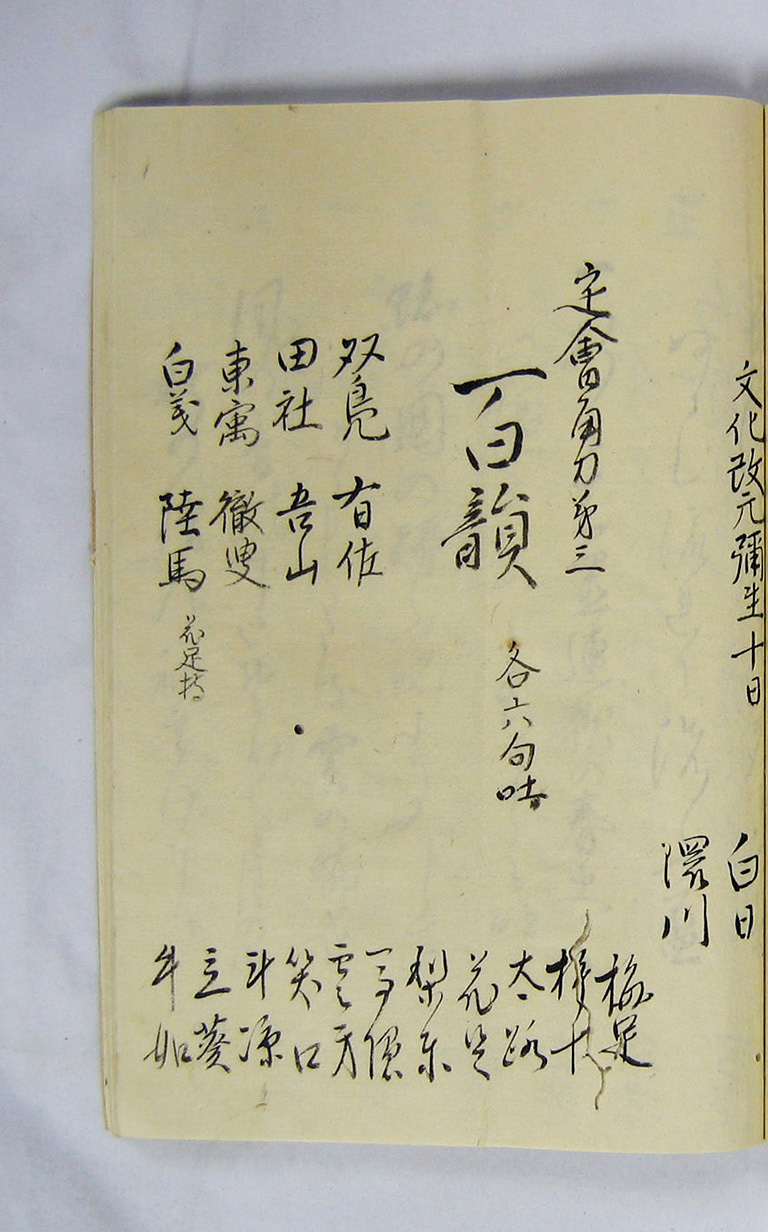 文化改元彌生十日
白日
澴川
定會角力第三
一日韻
各六句吐
双鳧 有佐
田社 吾山
東寓 徹叟
白義 陸馬
花足持
梅足
太路
花足
梨東
雲牙
笑口
斗涼
立葵
斗如